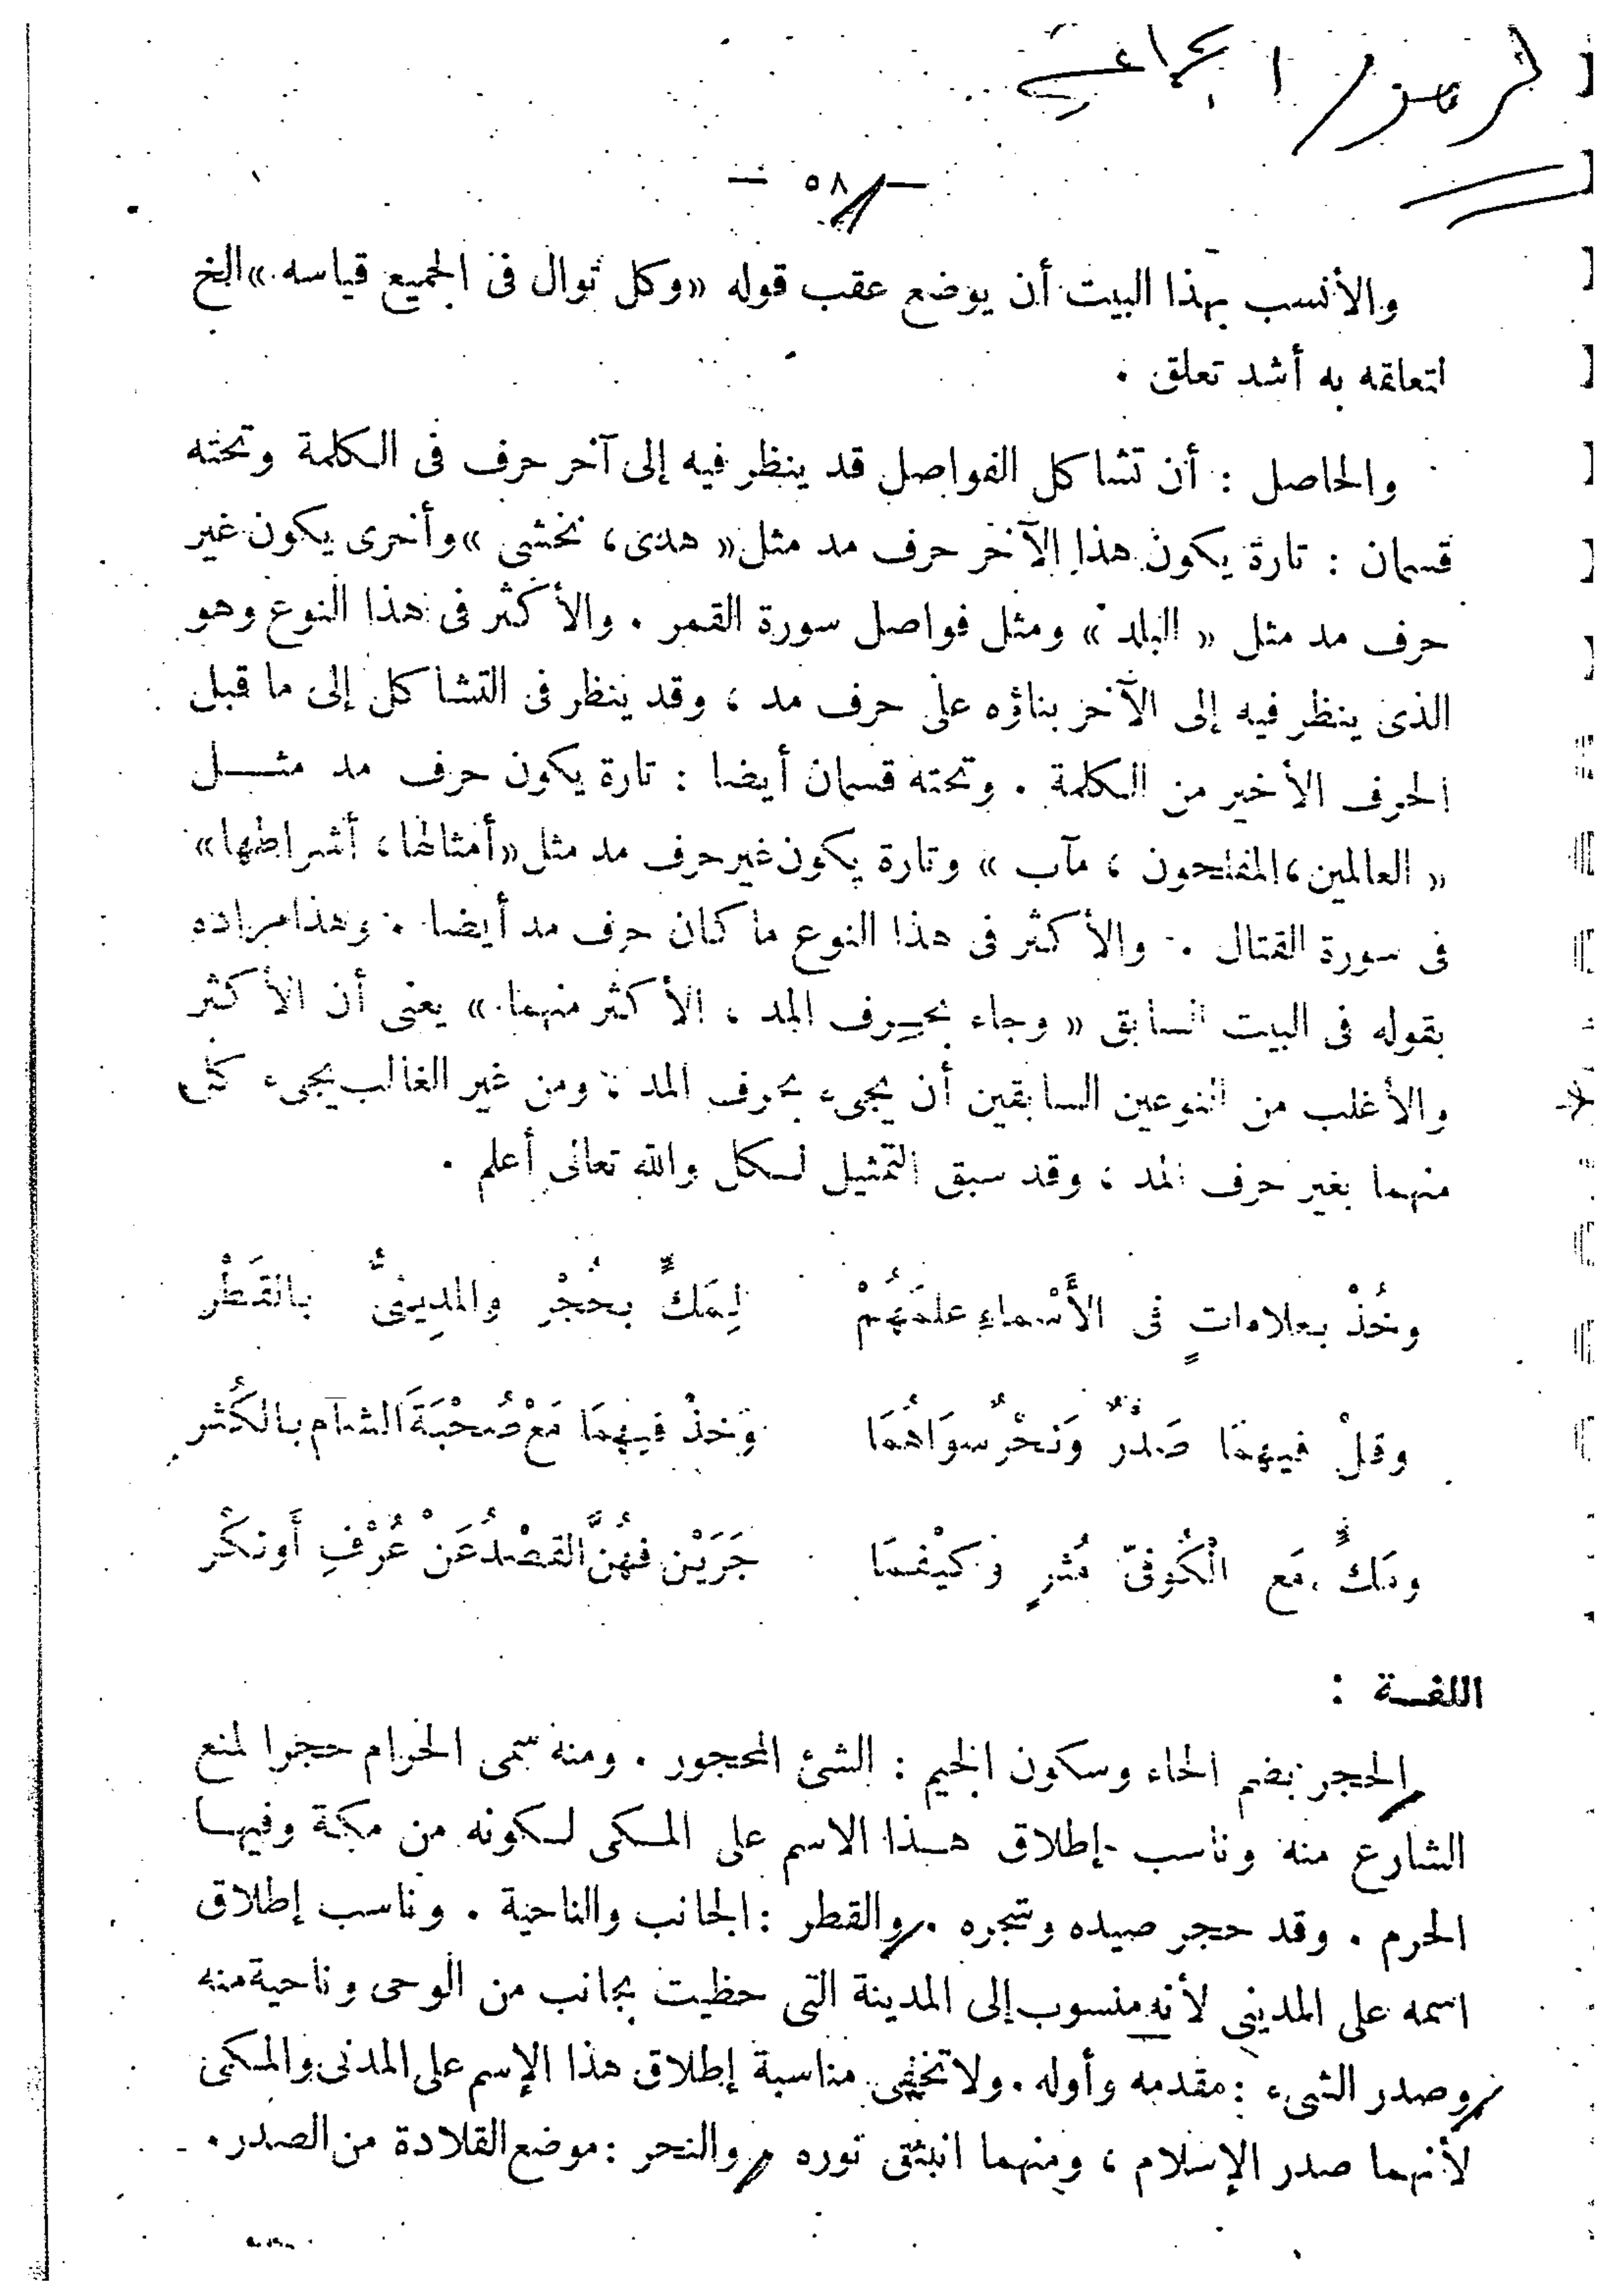 الرموز الجماعية
— ٥٨ —
والأنسب بهذا البيت أن يوضع عقب قوله «وكل توال فى الجميع قياسه» الخ
لتعلقه به أشد تعلق .
والحاصل : أن تشاكل الفواصل قد ينظر فيه إلى آخر حرف فى الكلمة وتحته
قسمان : تارة يكون هذا الآخر حرف مد مثل « هدى ، نخشى » وأخرى يكون غير
حرف مد مثل « البلد » ومثل فواصل سورة القمر . والأكثر فى هذا النوع وهو
الذى ينظر فيه إلى الآخر بناؤه على حرف مد ، وقد ينظر فى التشاكل إلى ما قبل
الحرف الأخير من الكلمة . وتحته قسمان أيضا : تارة يكون حرف مد مثل
« العالمين ، المفلحون ، مآب » وتارة يكون غير حرف مد مثل «أمثالها ، أشراطها»
فى سورة القتال . والأكثر فى هذا النوع ما كان حرف مد أيضا . وهذا مراده
بقوله فى البيت السابق « وجاء بحرف المد ، الأكثر منهما » يعنى أن الأكثر
والأغلب من النوعين السابقين أن يجىء بحرف المد ، ومن غير الغالب يجىء كل
منهما بغير حرف المد ، وقد سبق التمثيل لكل والله تعالى أعلم .
وخُذْ بعلاماتٍ فى الأَسْماءِ علمَهُمْ لِمَكٍّ بحُجْرِ والمدِينىُّ بالقَطْرِ
وقلْ فيهِمَا صَدْرٌ وَنَحْرٌ سوَاهُمَا وَخذْ فيهِمَا مَعْ صُحْبَةَ الشام بالكُثر
ومَكٍّ مَع الْكُوفىّ مُثرٍ وَكيْفمَا جَرَيْن فهُنَّ القصْدُ عَنْ عُرْفِ أَو نكْر
اللغة :
الحجر بضم الحاء وسكون الجيم : الشئ المحجور . ومنه سمى الحرام حجرا لمنع
الشارع منه وناسب إطلاق هذا الاسم على المكى لكونه من مكة وفيها
الحرم . وقد حجر صيده وشجره . والقطر : الجانب والناحية . وناسب إطلاق
اسمه على المدينى لأنه منسوب إلى المدينة التى حظيت بجانب من الوحى وناحية منه
وصدر الشىء : مقدمه وأوله . ولا تخفى مناسبة إطلاق هذا الإسم على المدنى والمكى
لأنهما صدر الإسلام ، ومنهما انبثق نوره والنحر : موضع القلادة من الصدر .